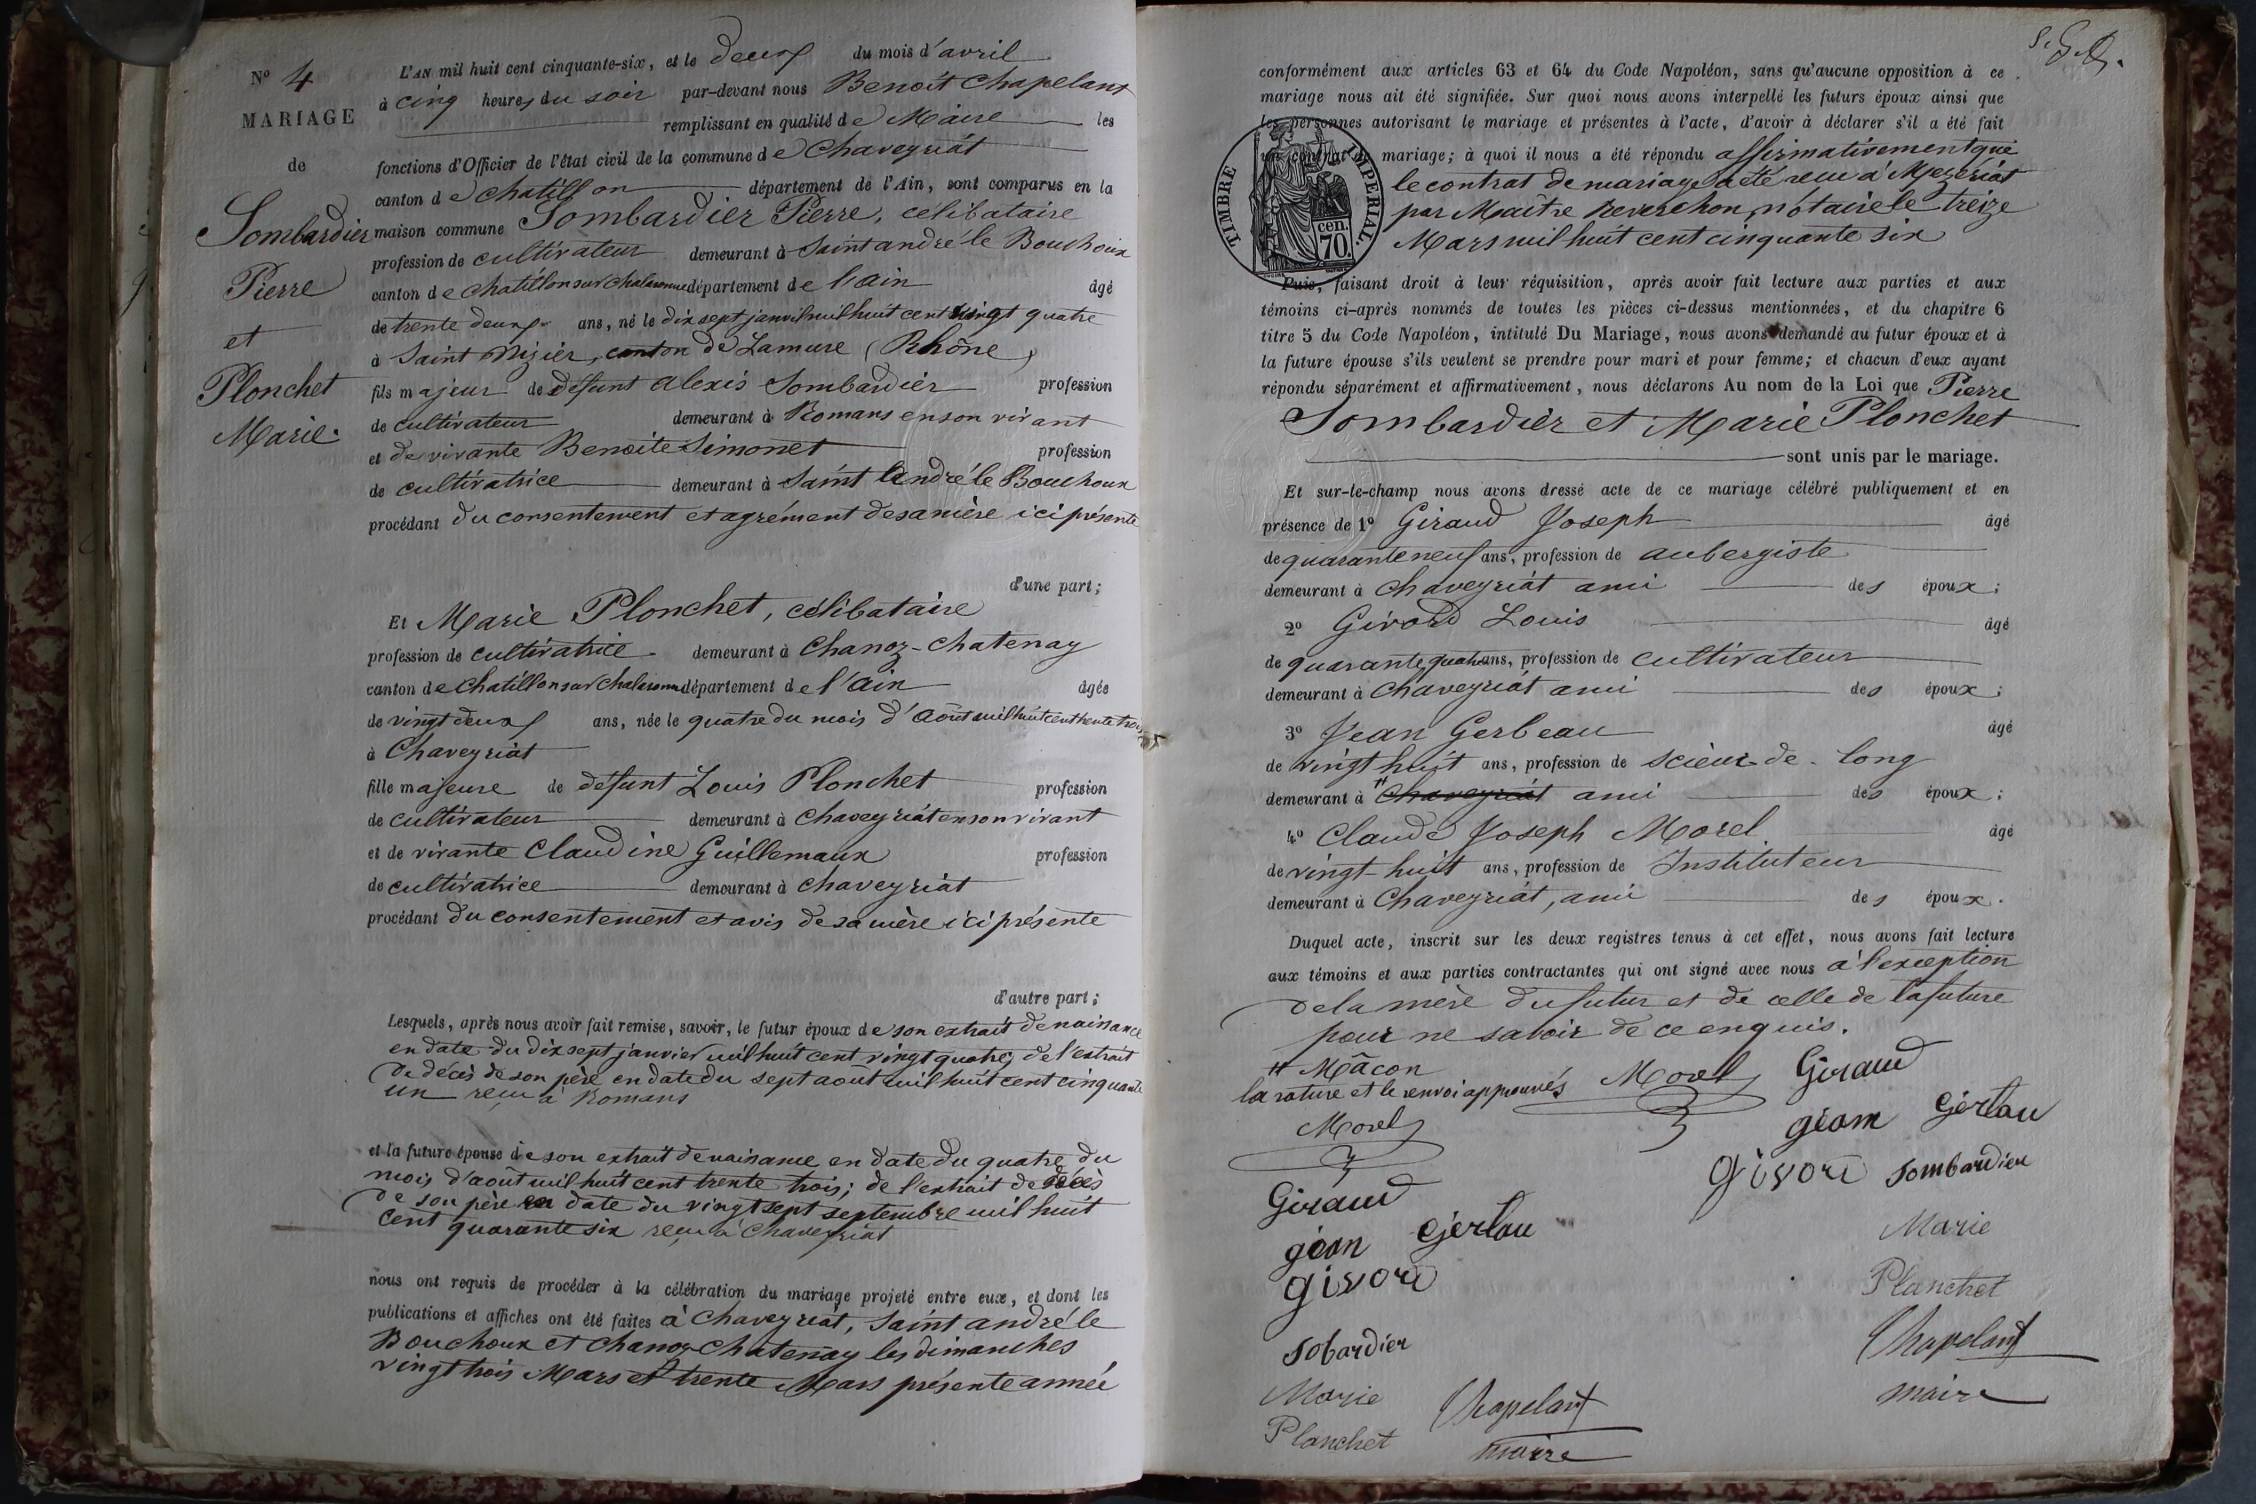 Nº 4
MARIAGE
de
Sombardier
Pierre
et
Plonchet
Marie.
L'AN mil huit cent cinquante-six, et le deux du mois d'avril
à cinq heures du soir par-devant nous Benoit Chapelant
remplissant en qualité de Maire les
fonctions d'Officier de l'état civil de la commune de Chaveyriat
canton de Chatillon département de l'Ain, sont comparus en la
maison commune Sombardier Pierre, célibataire
profession de cultivateur demeurant à Saint andré le Bouchoux
canton de Chatillon sur Chalaronne département de l'ain âgé
de trente deux ans, né le dix sept janvil mil huit cent vingt quatre
à Saint Nizier, canton de Lamure (Rhône)
fils majeur de défunt Alexis Sombardier profession
de cultivateur demeurant à Romans en son vivant
et de vivante Benoite Simonet profession
de cultivatrice demeurant à Saint André le Bouchoux
procédant du consentement et agrément de sa mère ici présente
d'une part;
Et Marie Plonchet, célibataire
profession de cultivatrice demeurant à Chanoz-Chatenay
canton de Chatillon sur Chalaronne département de l'Ain âgée
de vingt deux ans, née le quatre du mois d'Août mil huit cent trente trois
à Chaveyriat
fille majeure de défunt Louis Plonchet profession
de cultivateur demeurant à Chaveyriat en son vivant
et de vivante Claudine Guillemaux profession
de cultivatrice demeurant à chaveyriat
procédant du consentement et avis de sa mère ici présente
d'autre part;
Lesquels, après nous avoir fait remise, savoir, le futur époux de son extrait de naissance
en date du dix sept janvier mil huit cent vingt quatre; de l'extrait
de décès de son père en date du sept août mil huit cent cinquante
un reçu à Romans
et la future épouse de son extrait de naisance en date du quatre du
mois d'août mil huit cent trente trois; de l'extrait de décès
de son père en date du vingt sept septembre mil huit
cent quarante six reçu à Chaveyriat
nous ont requis de procéder à la célébration du mariage projeté entre eux, et dont les
publications et affiches ont été faites à Chaveyriat, Saint andré le
Bouchoux et Chanoz-Chatenay les dimanches
vingt trois Mars et trente Mars présente année
conformément aux articles 63 et 64 du Code Napoléon, sans qu'aucune opposition à ce
mariage nous ait été signifiée. Sur quoi nous avons interpellé les futurs époux ainsi que
les personnes autorisant le mariage et présentes à l'acte, d'avoir à déclarer s'il a été fait
un contrat de mariage; à quoi il nous a été répondu affirmativement que
le contrat de mariage a été reçu à Mézériat
par Maître Reverchon, notaire le treize
Mars mil huit cent cinquante six
TIMBRE IMPERIAL.
cen.
70.
Puis, faisant droit à leur réquisition, après avoir fait lecture aux parties et aux
témoins ci-après nommés de toutes les pièces ci-dessus mentionnées, et du chapitre 6
titre 5 du Code Napoléon, intitulé Du Mariage, nous avons demandé au futur époux et à
la future épouse s'ils veulent se prendre pour mari et pour femme; et chacun d'eux ayant
répondu séparément et affirmativement, nous déclarons Au nom de la Loi que Pierre
Sombardier et Marie Plonchet
sont unis par le mariage.
Et sur-le-champ nous avons dressé acte de ce mariage célébré publiquement et en
présence de 1º Giraud Joseph âgé
de quarante neuf ans, profession de aubergiste
demeurant à Chaveyriat ami des époux;
2º Givord Louis âgé
de quarante quatre ans, profession de cultivateur
demeurant à Chaveyriat ami des époux;
3º Jean Gerbeau âgé
de vingt huit ans, profession de scieur de long
demeurant à # Chaveyriat ami des époux;
4º Claude Joseph Morel âgé
de vingt huit ans, profession de Instituteur
demeurant à Chaveyriat, ami des époux.
Duquel acte, inscrit sur les deux registres tenus à cet effet, nous avons fait lecture
aux témoins et aux parties contractantes qui ont signé avec nous à l'exception
de la mère du futur et de celle de la future
pour ne savoir de ce enquis.
# Mâcon
la rature et le renvoi approuvés Morel Giraud
Morel
géam Gerbau
Givord Sombardier
Giraud
géan Gerbau
Marie
Givord
Planchet
Sobardier
Chapelant
maire
Marie
Planchet
Chapelant
maire